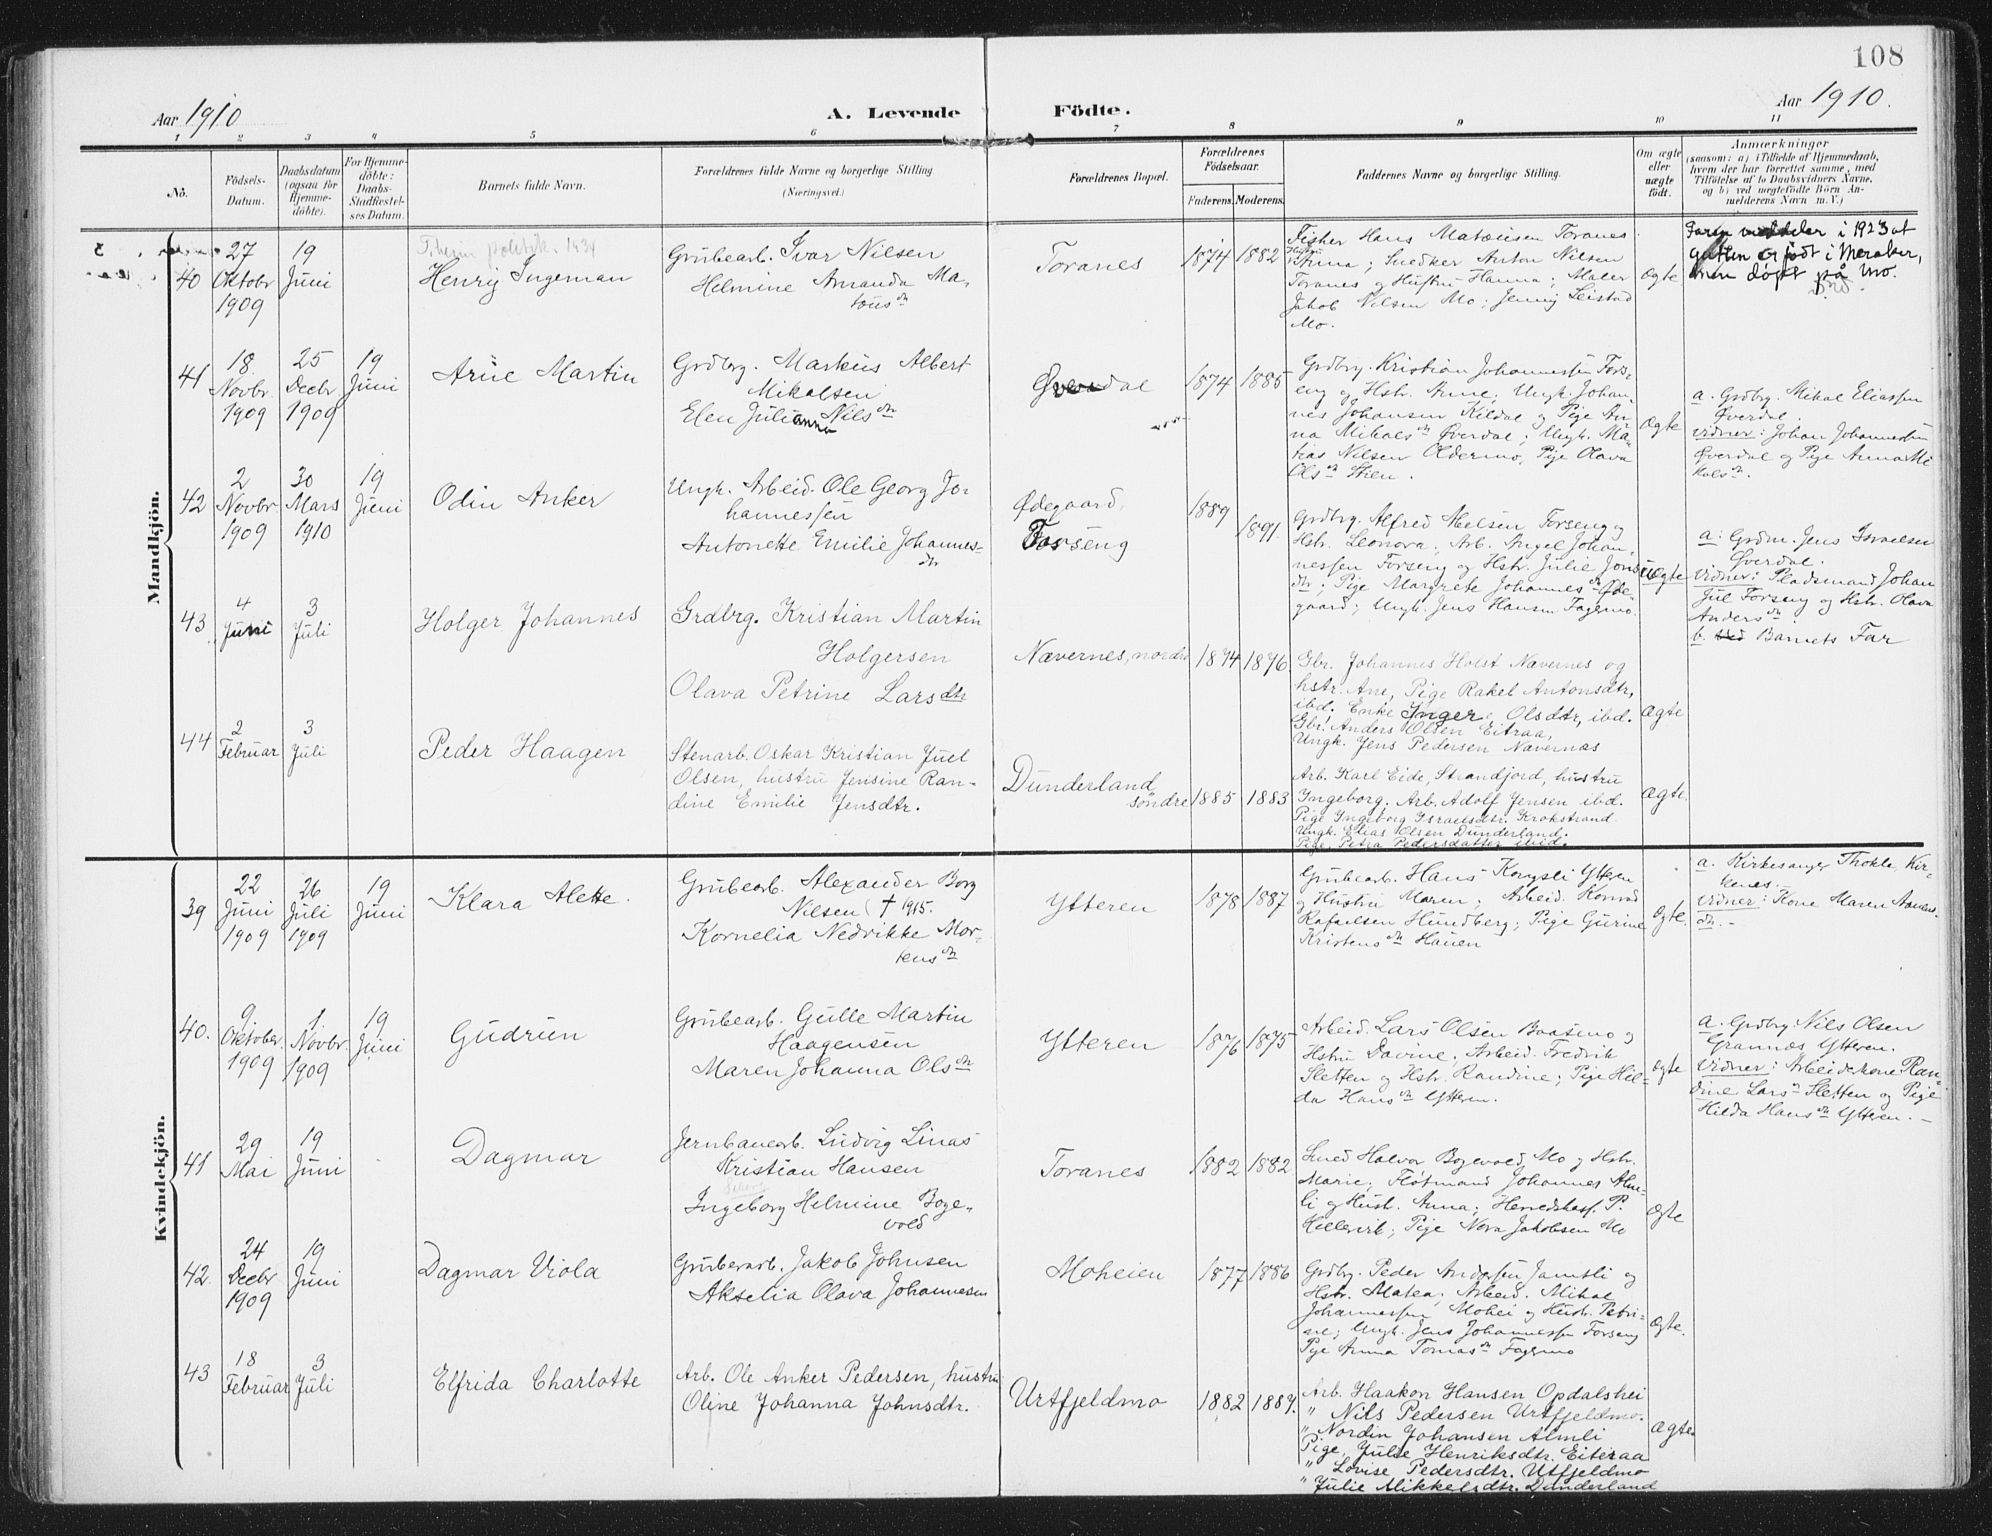 108
Aar 1910
A. Levende Födte.
Aar 1910.
1 2 3 4 5 6 7 8 9 10 11
No.
Födsels-
Datum.
Daabsdatum
(ogsaa for
Hjemme-
döbte).
For Hjemme-
döbte:
Daabs-
Stadfæstel-
ses Datum.
Barnets fulde Navn.
Forældrenes fulde Navne og borgerlige Stilling.
(Næringsvei.)
Forældrenes Bopæl.
Forældrenes
Födselsaar.
Faderens. Moderens.
Faddernes Navne og borgerlige Stilling.
Om ægte
eller
uægte
födt.
Anmærkninger
(saasom: a) i Tilfælde af Hjemmedaab,
hvem der har forrettet samme, med
Tilföielse af to Daabsvidners Navne,
og b) ved uægtefödte Börn An-
melderens Navn m. V.)
Mandkjön.
40
27
Oktobr
1909
19
Juni
Henrij Ingeman
Grubearb. Ivar Nilsen
Helmine Amanda Ma-
tous dtr
Toranes
1874 1882
Fisher Hans Matæusen Toranes
Hustru Anna; Snedker Anton Nilsen
Toranes og Hustru Hanna; Maler
Jakob Nilsen Mo; Jenny Leistad
Mo.
Ægte
Faren meddeler i 1923 at
gutten er født i Meraker,
men døpt på Mo.
41
18
Novbr
1909
25
Decbr
1909
19
Juni
Arne Martin
Grdbrg. Markus Albert
Mikalsen
Elen Julianna Nils dtr
Øverdal
1874 1885
Grdbrg. Kristian Johannessen Fors-
eng og Hstr. Anne; Ungk. Johan-
nes Johansen Kildal og Pige An-
na Mikals dtr Øverdal; Ungk. Ma-
tias Nilsen Oldermo, Pige Olava
Ols dtr Stien.
Ægte
a. Grdbrg. Mikal Eliassen
Øverdal.
vidner: Johan Johannessen
Øverdal og Pige Anna Mi
kals dtr.
42
2
Novbr
1909
30
Mars
1910
19
Juni
Odin Anker
Ungk. Arbeid. Ole Georg Jo-
hannessen
Antonette Emilie Johannes-
dtr
Ødegaard,
Forseng
1889
1891.
Grdbrg. Alfred Nielsen Forseng og
Hstr. Leonora; Arb. Angel Johan-
nessen Forseng og Hstr. Julie Jons
dtr; Pige Margrete Johannes dtr Øde-
gaard; Ungk. Jens Hansen Fagermo.
Uægte
a: Grdm. Jens Israelsen
Øverdal.
Vidner: Pladsmand Johan
Jul Forseng og Hstr. Olava
Anders dtr
b. Barnets Far
43
4
Juni
3
Juli
Holger Johannes
Grdbrg. Kristian Martin
Holgersen
Olava Petrine Larsdtr
Nævernes, nordre
1874 1876
Gbr. Johannes Holst Nævernes og
hstr. Ane, Pige Rakel Antonsdtr,
ibd. Enke Inger Olsdtr, ibd.
Gbr. Anders Olsen Eitraa,
Ungk. Jens Pedersen Nævernæs
Ægte
44
2
Februar
3
Juli
Peder Haagen
Stenarb. Oskar Kristian Juel
Olsen, hustru Jensine Ran-
dine Emilie Jensdtr.
Dunderland
søndre
1885 1883
Arb. Karl Eide, Strandjord, hustru
Ingeborg. Arb. Adolf Jensen ibd.
Pige Ingeborg Israelsdtr. Krokstrand
Ungk. Elias Olsen Dunderland.
Pige, Petra Pedersdatter ibid.
Ægte.
Kvindekjön.
39
22
Juni
1909
26
Juli
1909
19
Juni
Klara Alette.
Grubearb. Alexander Borg
Nilsen († 1915.
Kornelia Nedrikke Mor-
tens dtr
Ytteren
1878 1887
Grubearb. Hans Korgsli Ytteren
og Hustru Maren; Arbeid. Konrad
Rafaelsen Hundberg; Pige Gurine
Kristens dtr Hauen
Ægte.
a. Kirkesanger Thokle, Kir-
kenes.
Vidner: Kone Maren Aanens-
dtr. -
40.
9
Oktober
1909
1
Novbr.
1909
19
Juni
Gudrun
Grubearb. Gulle Martin
Haagensen
Maren Johanna Ols dtr
Ytteren
1876 1875
Arbeid. Lars Olsen Baasmo og
Hstru Davine; Arbeid. Fredrik
Sletten og Hstr. Randine; Pige Hil-
da Hans dtr Ytteren.
Ægte
a. Grdbrg. Nils Olsen
Grannæs Ytteren.
Vidner: Arbeiderkone Ran-
dine Lars dtr Sletten og Pige
Hilda Hans dtr Ytteren. -
41
29
Mai
19
Juni
Dagmar
Jernbanearb. Ludvig Linas
Kristian Hansen
Ingeborg Helmine Boge-
vold
Toranes
1882 1882
Smed Halvor Bogevold, Mo og Hstr.
Marie; Fløtmand Johannes Alm-
li og Hustr. Anna; Herredskass. P.
Hellesvik; Pige Nora Jakobsen Mo
Ægte
42.
24
Decbr
1909
19
Juni
Dagmar Viola
Grubearb. Jakob Johnsen
Akselia Olava Johannesen
Moheien
1877 1886
Grdbrg. Peder Andersen Jamtli og
Hstr. Matea; Arbeid. Mikal
Johannessen Mohei og Hustr. Petri-
ne; Ungk. Jens Johannessen Forseng
Pige Anna Tomas dtr Fagermo
Ægte.
43
18
Februar
3
Juli
Elfrida Charlotte
Arb. Ole Anker Pedersen, hustru
Oline Johanna Johnsdtr.
Urtfjeldmo
1882 1889.
Arb. Haakon Hansen Opdalshei
" Nils Pedersen Urtfjeldmo.
" Nordin Johansen Almli
Pige, Julie Henriksdtr. Eiteraa
" Lovise Pedersdtr. Urtfjeldmo
" Julie Mikkelsdtr. Dunderland
Ægte